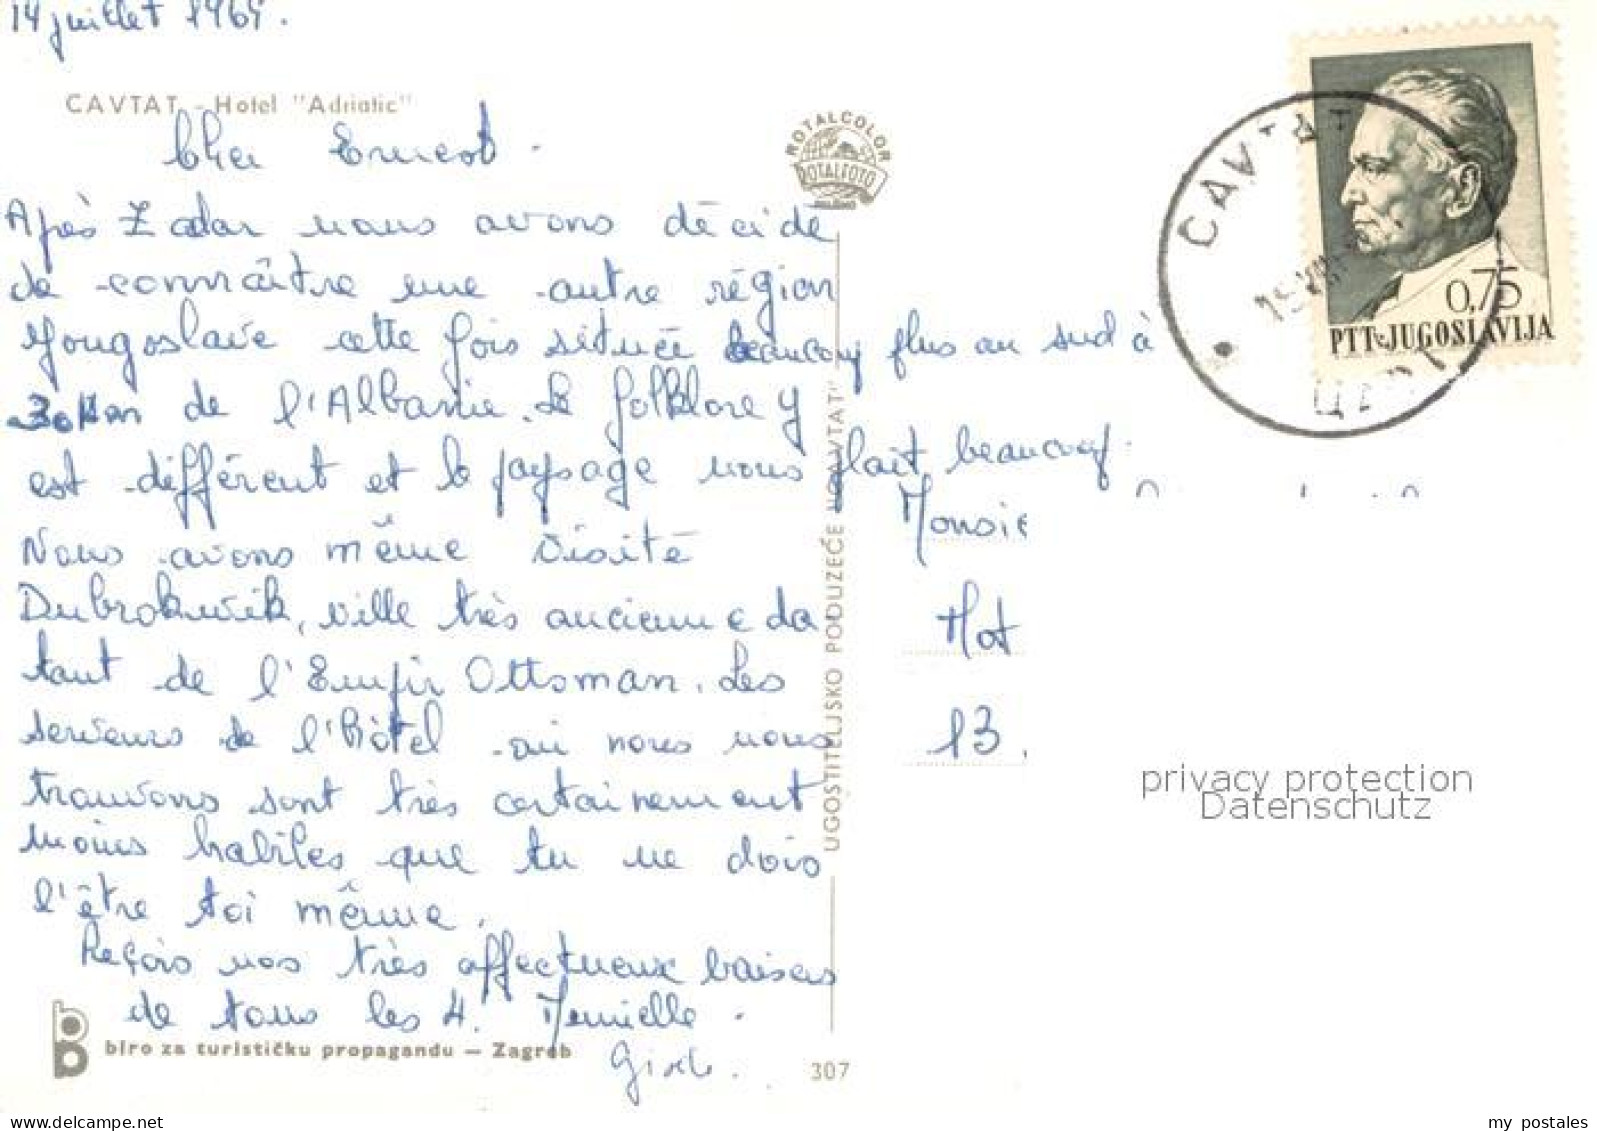 14 juillet 1969.
CAVTAT - Hotel "Adriatic"
Cher Ernest.
Après Zadar nous avons décidé
de connaître une autre région
Yougoslavie cette fois située beaucoup plus au sud à
30 km de l'Albanie. Le folklore y
est différent et le paysage nous plait beaucoup.
Nous avons même visité
Dubrokwik, ville très ancienne da
tant de l'Empir Ottsman. Les
serveurs de l'hôtel où nous nous
trouvons sont très certainement
moins habiles que tu ne dois
l'être toi même.
Reçois nos très affectueux baisers
de tous les 4.
biro za turističku propagandu — Zagreb
307
ROTALCOLOR
ROTALFOTO
UGOSTITELJSKO PODUZEĆE "CAVTAT"
CAVTAT
0,75
PTT JUGOSLAVIJA
Monsie
Hot
13.
privacy protection
Datenschutz
delcampe.net
my_postales